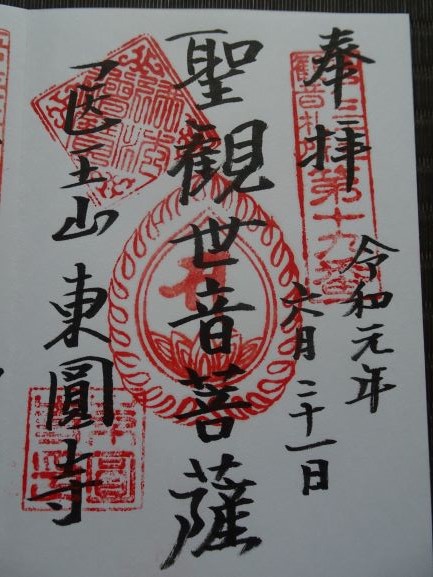 奉拝
観音札所第十九番
令和元年
六月二十一日
聖観世音菩薩
医王山 東圓寺